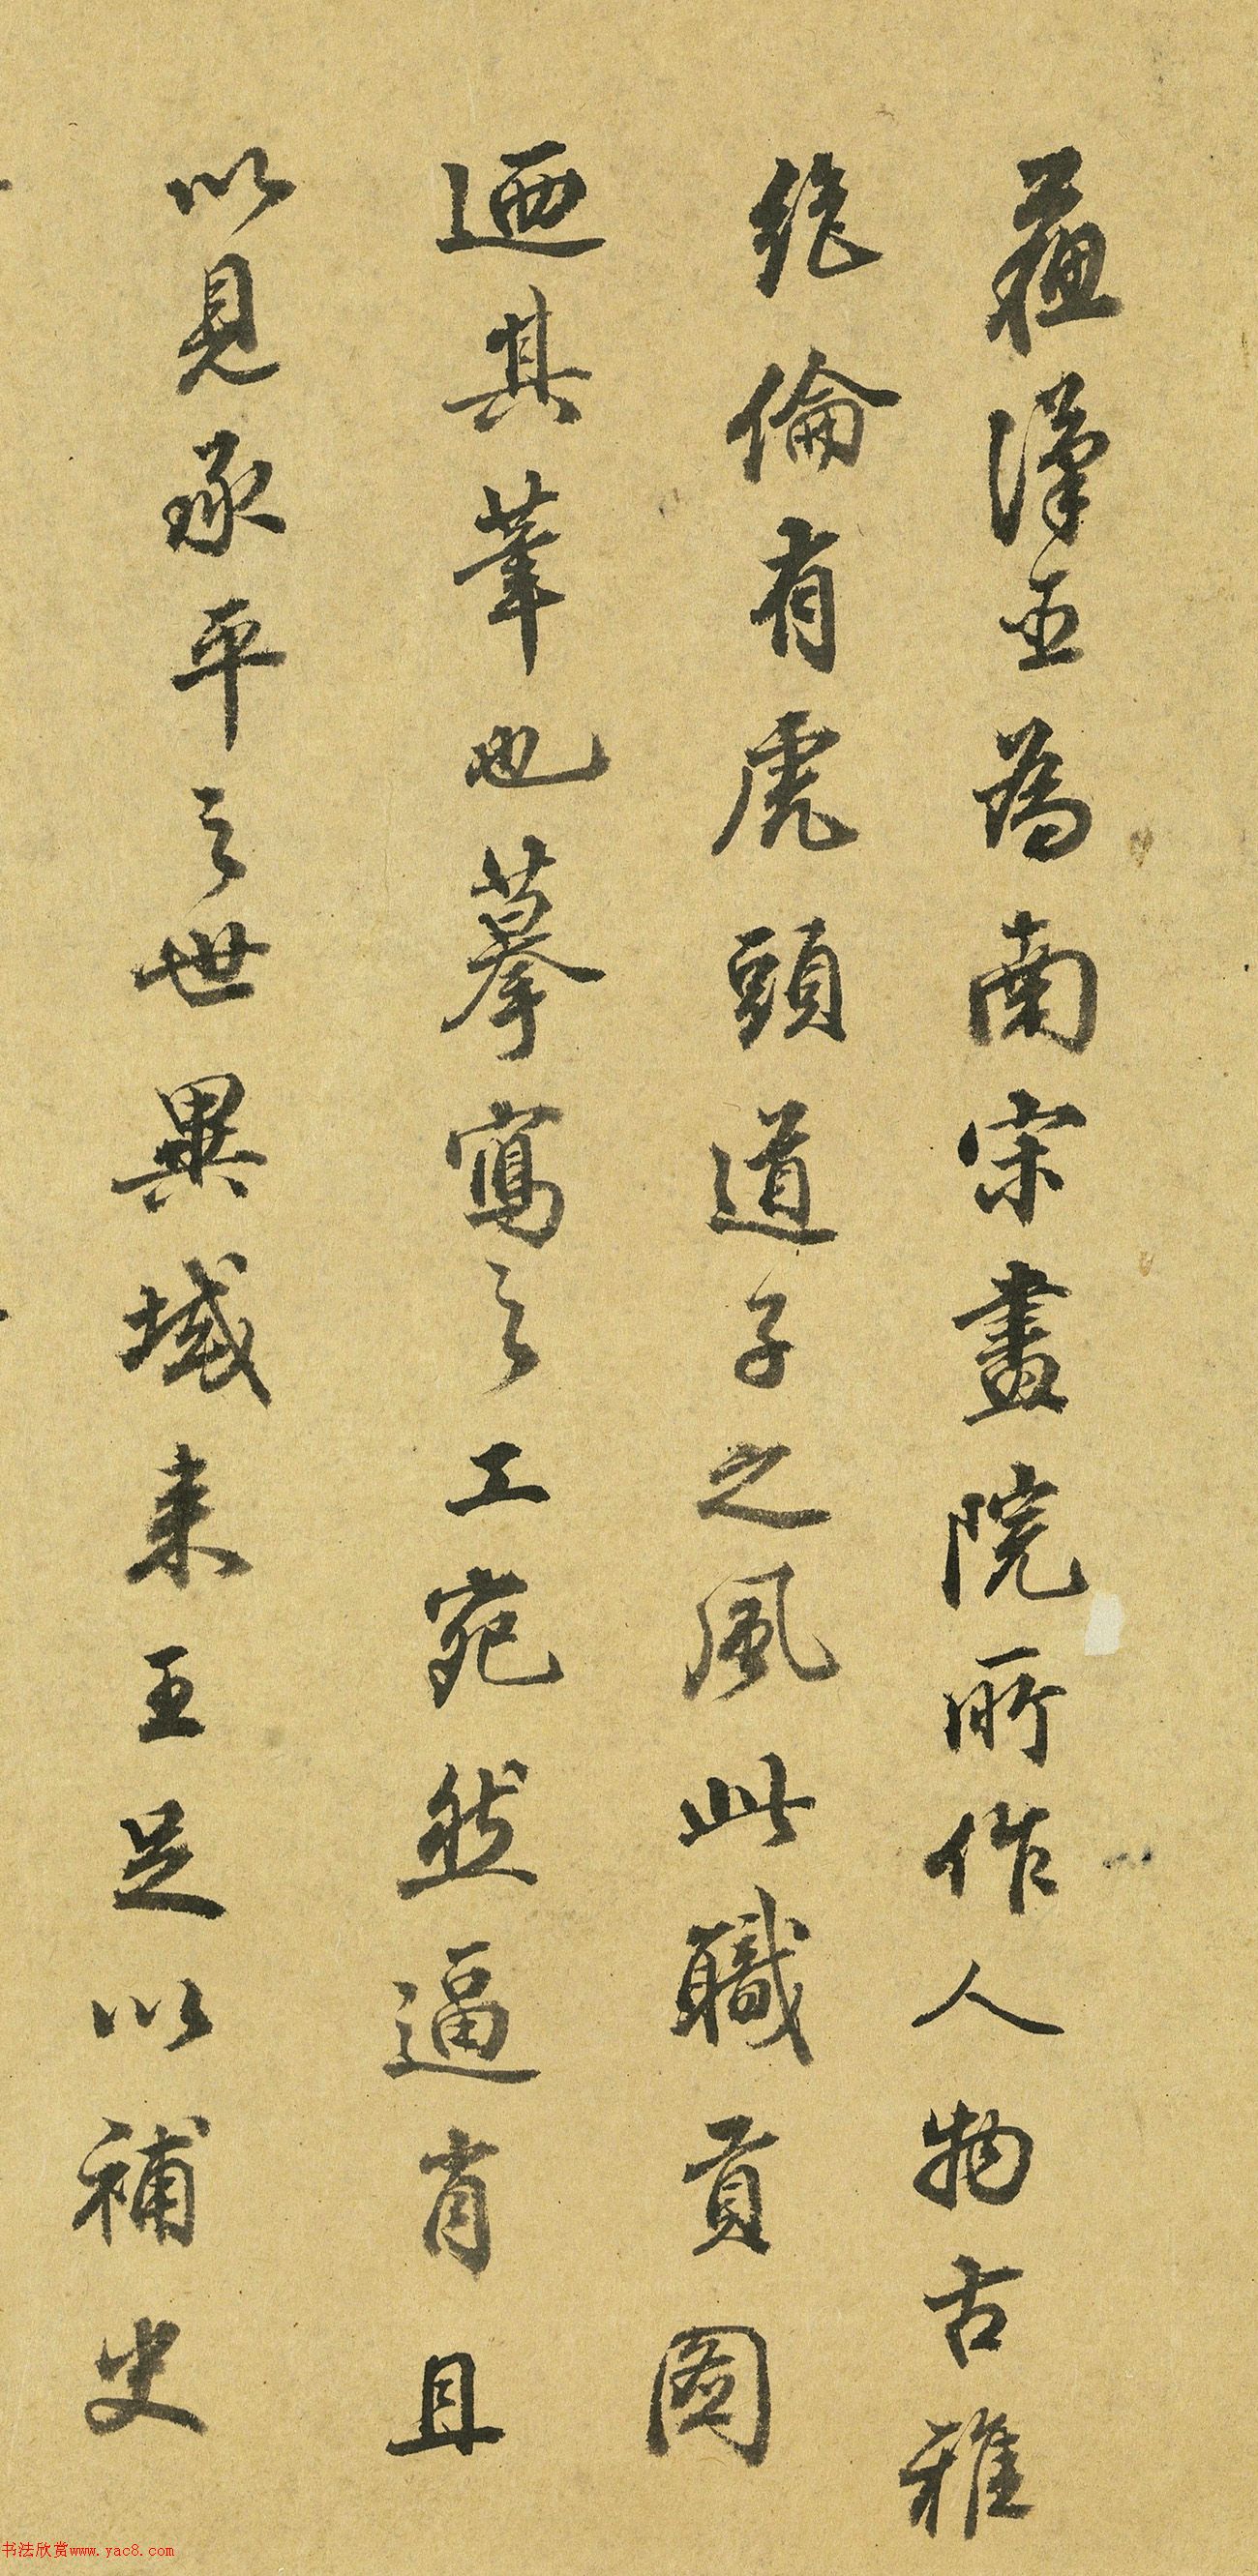 蘇漢臣為南宋畫院所作人物古雅
絕倫有虎頭道子之風此職貢圖
迺其筆也摹寫之工宛然逼肖且
以見承平之世異域來王足以補史
书法欣赏www.yac8.com